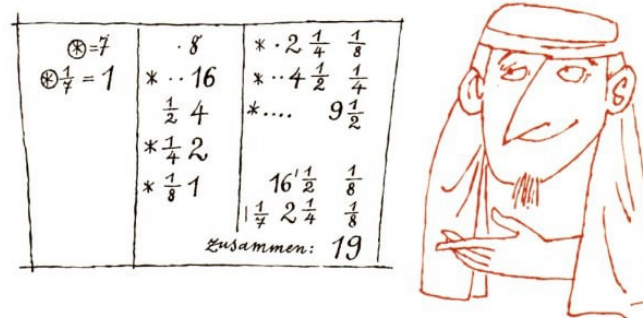 ⊛=7
⊛ 1/7 = 1
· 8
* ·· 16
1/2 4
* 1/4 2
* 1/8 1
* · 2 1/4 1/8
* ·· 4 1/2 1/4
* ···· 9 1/2
16' 1/2 1/8
| 1/7 2 1/4 1/8
zusammen: 19